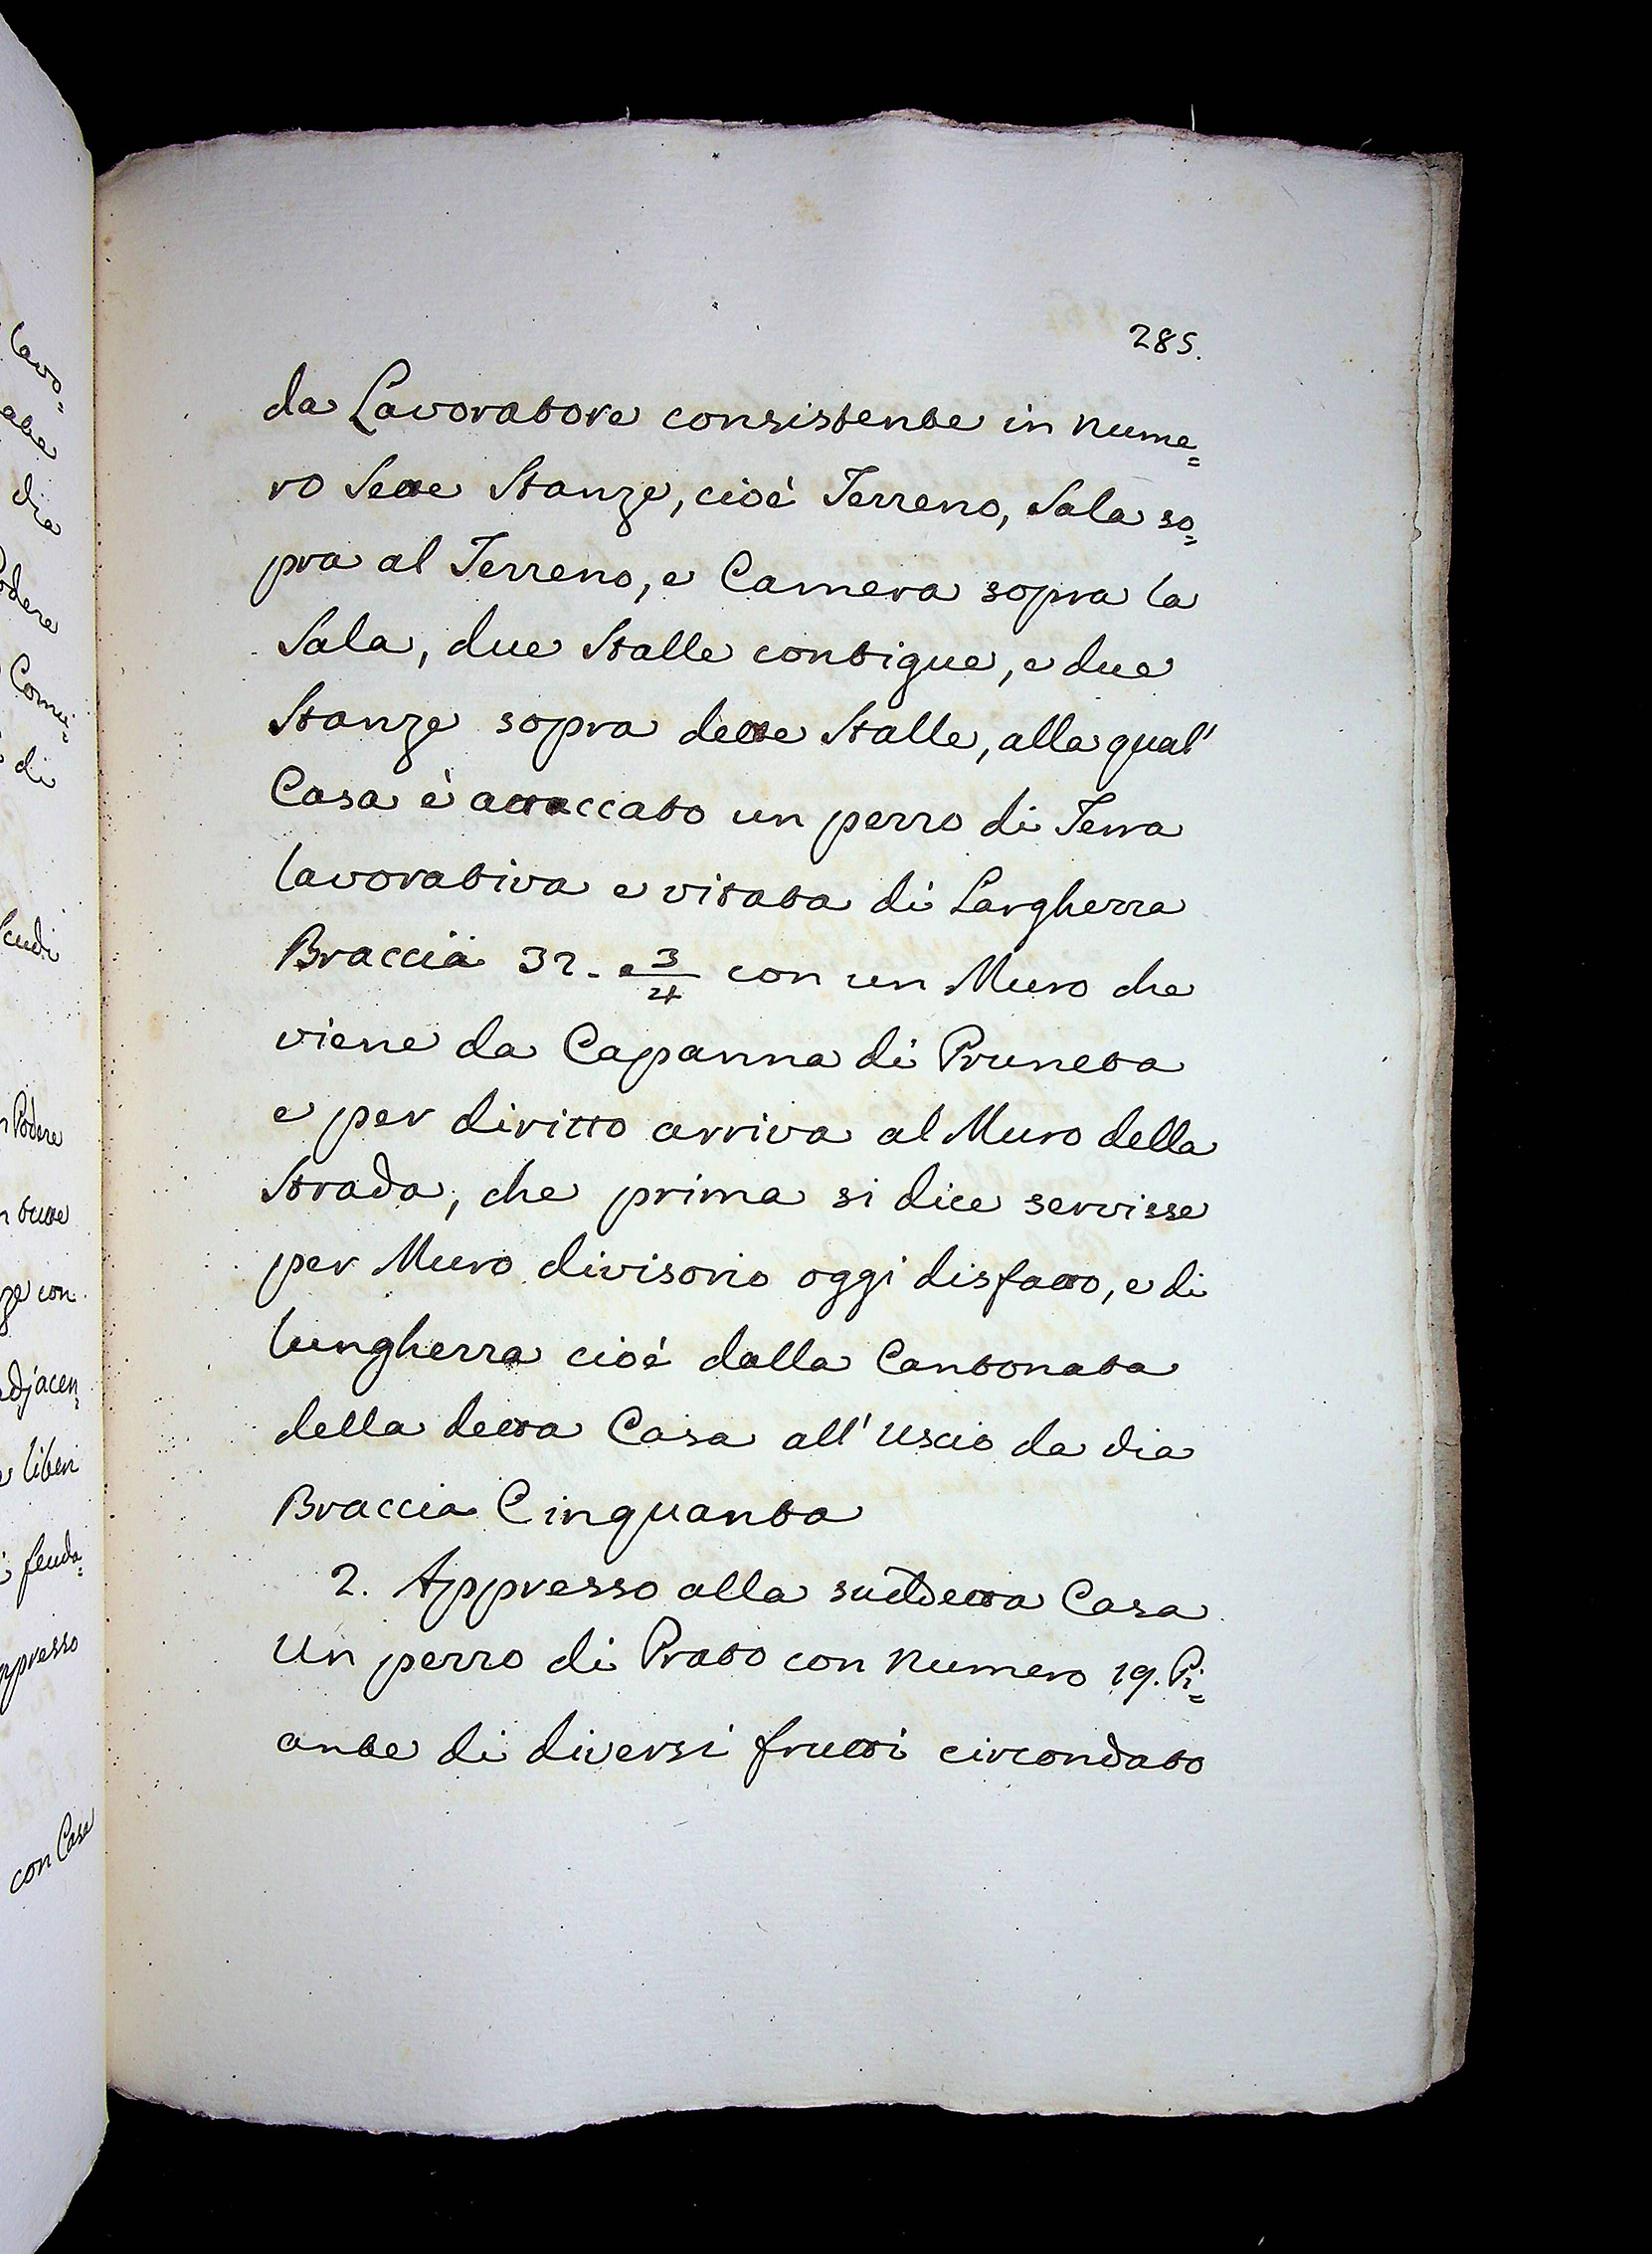 285.
da Lavoratore consistente in nume=
ro Sette Stanze, cioè Terreno, Sala so=
pra al Terreno, e Camera sopra la
Sala, due Stalle contigue, e due
Stanze sopra dette Stalle, alla qual'
Casa è attaccato un pezzo di Terra
lavorativa e vitata di Larghezza
Braccia 32. e 3/4 con un Muro che
viene da Capanna di Pruneta
e per diritto arriva al Muro della
Strada, che prima si dice servisse
per Muro divisorio oggi disfatto, e di
lunghezza cioè dalla Cantonata
della detta Casa all'Uscio da via
Braccia Cinquanta
2. Appresso alla suddetta Casa
Un pezzo di Prato con Numero 19. Pi=
ante di diversi frutti circondato
lavo=
dia
Podere
Comu=
di
Scudi
Podere
tutte
con
adjacen=
liberi
feuda=
Appresso
con Casa